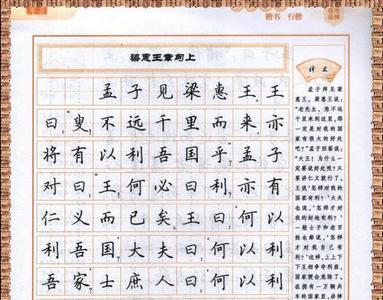 楷书 行楷
梁惠王章句上
孟子见梁惠王。王
曰:“叟!不远千里而来,亦
将有以利吾国乎?”孟子
对曰:“王!何必曰利?亦有
仁义而已矣。王曰:‘何以
利吾国?’大夫曰:‘何以利
吾家?’士庶人曰:‘何以利
译文
孟子拜见梁
惠王。梁惠王说:
“老先生,您不远
千里来到这里,那
一定是对我的国
家有很大的好处
吧?”孟子回答说:
“大王!为什么一
定要说好处呢?只
要讲仁义就行了。
王说,‘怎样对我的
国家有利?’大夫
也说,‘怎样才对我
的封地有利?’一
般士子和老百
姓也都说,‘怎样
才对我自己有
利?’这样,上上下
下互相争夺利益,
国家便会危险了。
拥有一万辆兵
车的国家里,